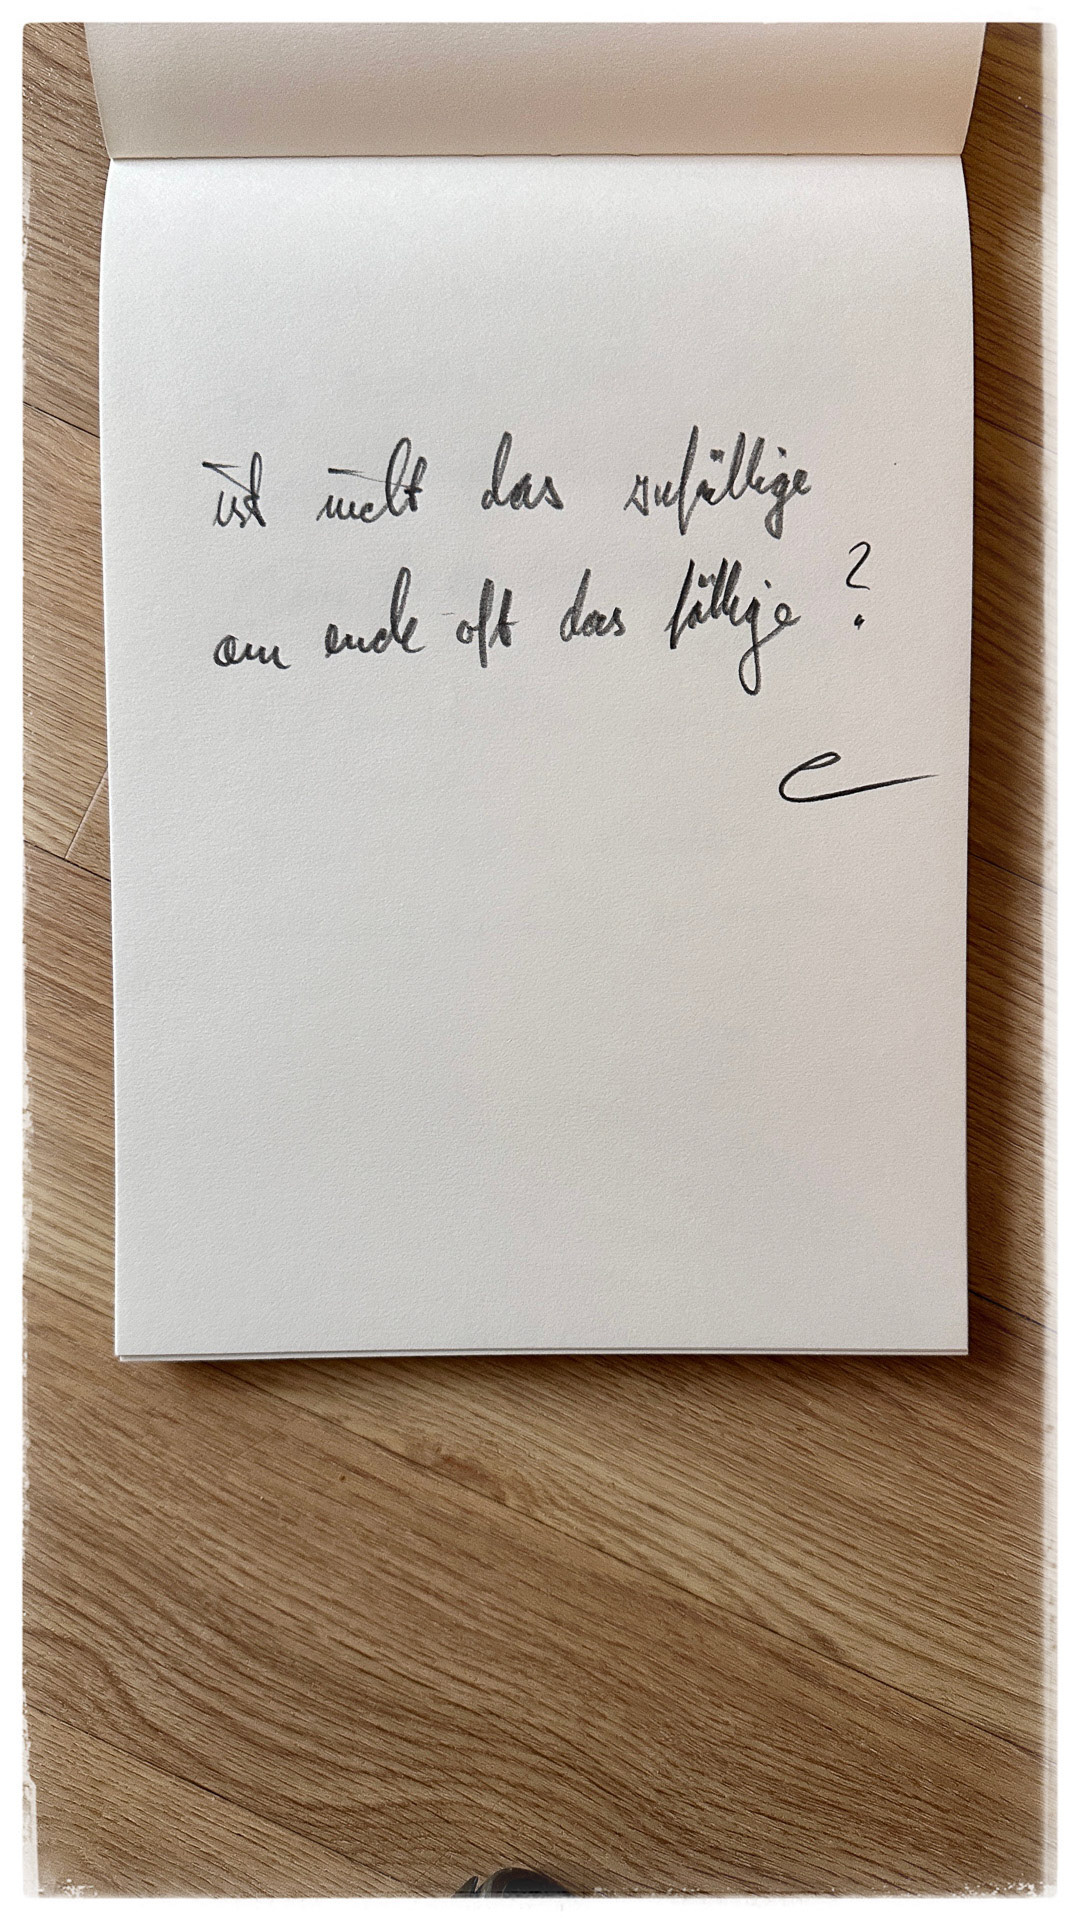 ist nicht das zufällige
am ende oft das fällige?
e